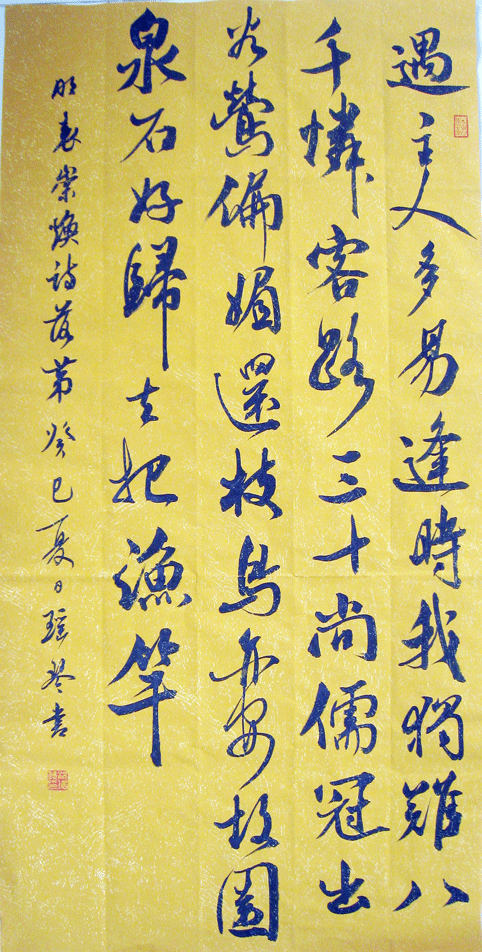 遇主人多易逢時我獨難八
千憐客路三十尚儒冠出
谷鶯偏媚還枝鳥亦安故園
泉石好歸去把漁竿
明袁崇煥詩落第癸巳夏日瑶琴書